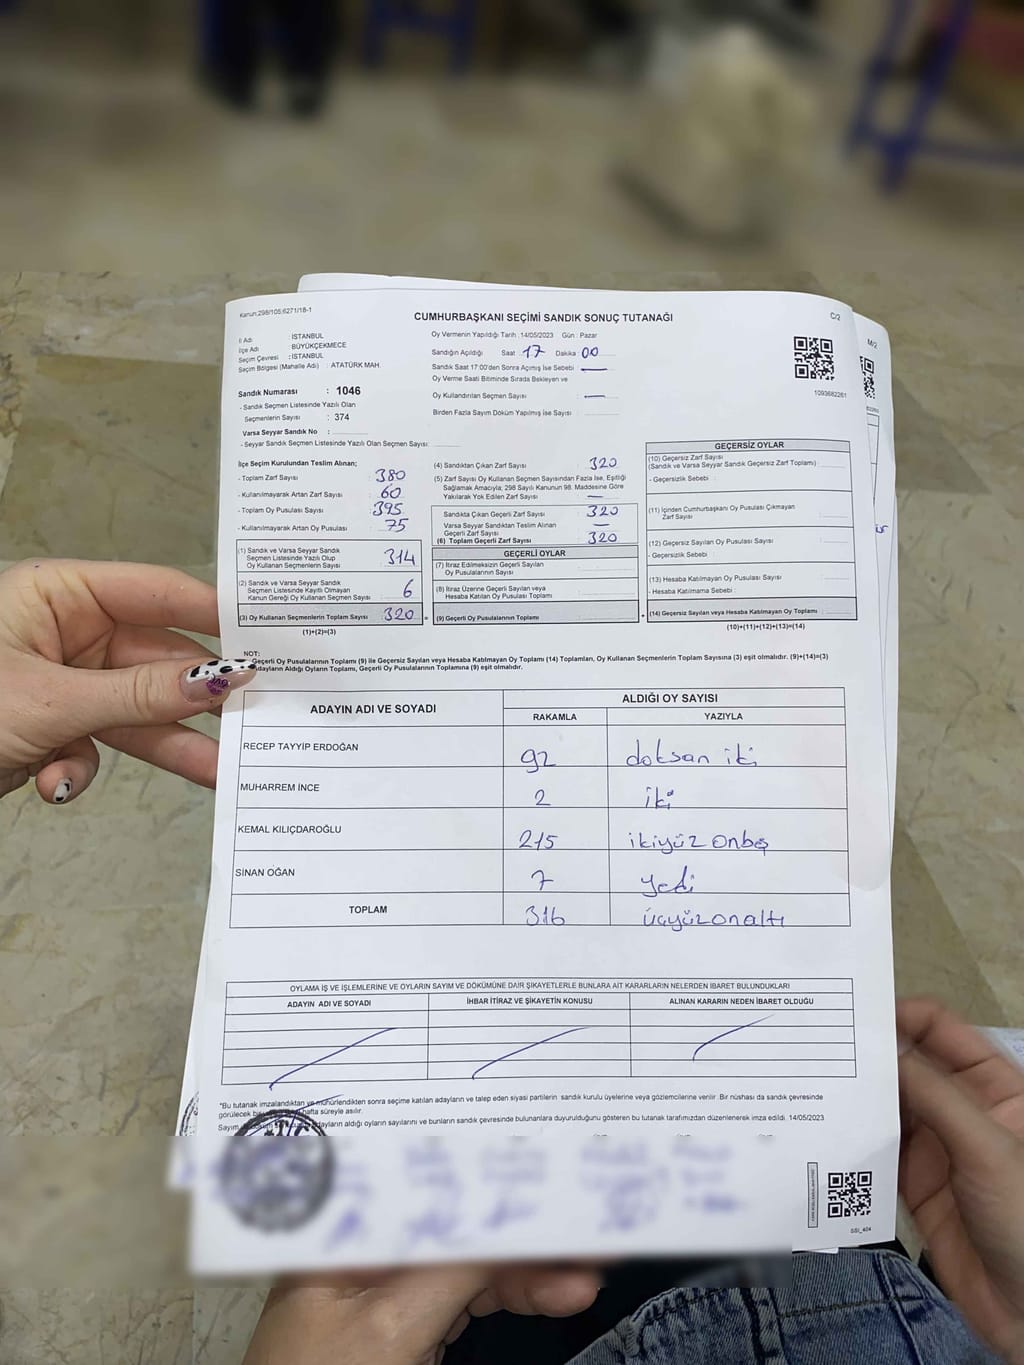 Kanun;298/105;6271/18-1
CUMHURBAŞKANI SEÇİMİ SANDIK SONUÇ TUTANAĞI
C/2
M/2
İl Adı : İSTANBUL
İlçe Adı : BÜYÜKÇEKMECE
Seçim Çevresi : İSTANBUL
Seçim Bölgesi (Mahalle Adı) : ATATÜRK MAH.
Sandık Numarası : 1046
- Sandık Seçmen Listesinde Yazılı Olan
Seçmenlerin Sayısı : 374
Varsa Seyyar Sandık No :
- Seyyar Sandık Seçmen Listesinde Yazılı Olan Seçmen Sayısı:
Oy Vermenin Yapıldığı Tarih : 14/05/2023 Gün : Pazar
Sandığın Açıldığı Saat 17 Dakika 00
Sandık Saat 17:00'den Sonra Açımış İse Sebebi
Oy Verme Saati Bitiminde Sırada Bekleyen ve
Oy Kullandırılan Seçmen Sayısı
Birden Fazla Sayım Döküm Yapılmış İse Sayısı :
1093682261
İlçe Seçim Kurulundan Teslim Alınan;
- Toplam Zarf Sayısı : 380
- Kullanılmayarak Artan Zarf Sayısı : 60
- Toplam Oy Pusulası Sayısı : 395
- Kullanılmayarak Artan Oy Pusulası : 75
(1) Sandık ve Varsa Seyyar Sandık
Seçmen Listesinde Yazılı Olup
Oy Kullanan Seçmen Sayısı : 314
(2) Sandık ve Varsa Seyyar Sandık
Seçmen Listesinde Kayıtlı Olmayan
Kanun Gereği Oy Kullanan Seçmen Sayısı : 6
(3) Oy Kullanan Seçmenlerin Toplam Sayısı : 320 =
(1)+(2)=(3)
(4) Sandıktan Çıkan Zarf Sayısı : 320
(5) Zarf Sayısı Oy Kullanan Seçmen Sayısından Fazla İse, Eşitliği
Sağlamak Amacıyla; 298 Sayılı Kanunun 98. Maddesine Göre
Yakılarak Yok Edilen Zarf Sayısı : —
Sandıkta Çıkan Geçerli Zarf Sayısı : 320
Varsa Seyyar Sandıktan Teslim Alınan
Geçerli Zarf Sayısı : —
(6) Toplam Geçerli Zarf Sayısı : 320
GEÇERLİ OYLAR
(7) İtiraz Edilmeksizin Geçerli Sayılan
Oy Pusulalarının Sayısı :
(8) İtiraz Üzerine Geçerli Sayılan veya
Hesaba Katılan Oy Pusulası Toplamı :
(9) Geçerli Oy Pusulalarının Toplamı : +
GEÇERSİZ OYLAR
(10) Geçersiz Zarf Sayısı
(Sandık ve Varsa Seyyar Sandık Geçersiz Zarf Toplamı) :
- Geçersizlik Sebebi :
(11) İçinden Cumhurbaşkanı Oy Pusulası Çıkmayan
Zarf Sayısı :
(12) Geçersiz Sayılan Oy Pusulası Sayısı :
- Geçersizlik Sebebi :
(13) Hesaba Katılmayan Oy Pusulası Sayısı :
- Hesaba Katılmama Sebebi :
(14) Geçersiz Sayılan veya Hesaba Katılmayan Oy Toplamı :
(10)+(11)+(12)+(13)=(14)
NOT:
Geçerli Oy Pusulalarının Toplamı (9) ile Geçersiz Sayılan veya Hesaba Katılmayan Oy Toplamı (14) Toplamları, Oy Kullanan Seçmenlerin Toplam Sayısına (3) eşit olmalıdır. (9)+(14)=(3)
Adayların Aldığı Oyların Toplamı, Geçerli Oy Pusulalarının Toplamına (9) eşit olmalıdır.
ADAYIN ADI VE SOYADI ALDIĞI OY SAYISI
RAKAMLA YAZIYLA
RECEP TAYYİP ERDOĞAN 92 doksan iki
MUHARREM İNCE 2 iki
KEMAL KILIÇDAROĞLU 215 ikiyüz onbeş
SİNAN OĞAN 7 yedi
TOPLAM 316 üçyüzonaltı
OYLAMA İŞ VE İŞLEMLERİNE VE OYLARIN SAYIM VE DÖKÜMÜNE DAİR ŞİKAYETLERLE BUNLARA AİT KARARLARIN NELERDEN İBARET BULUNDUKLARI
ADAYIN ADI VE SOYADI İHBAR İTİRAZ VE ŞİKAYETİN KONUSU ALINAN KARARIN NEDEN İBARET OLDUĞU
*Bu tutanak imzalandıktan ve mühürlendikten sonra seçime katılan adayların ve talep eden siyasi partilerin sandık kurulu üyelerine veya gözlemcilerine verilir. Bir nüshası da sandık çevresinde
görülecek bir hafta süreyle asılır.
Sayım adayların aldığı oyların sayılarını ve bunların sandık çevresinde bulunanlara duyurulduğunu gösteren bu tutanak tarafımızdan düzenlenerek imza edildi. 14/05/2023
SSI_404